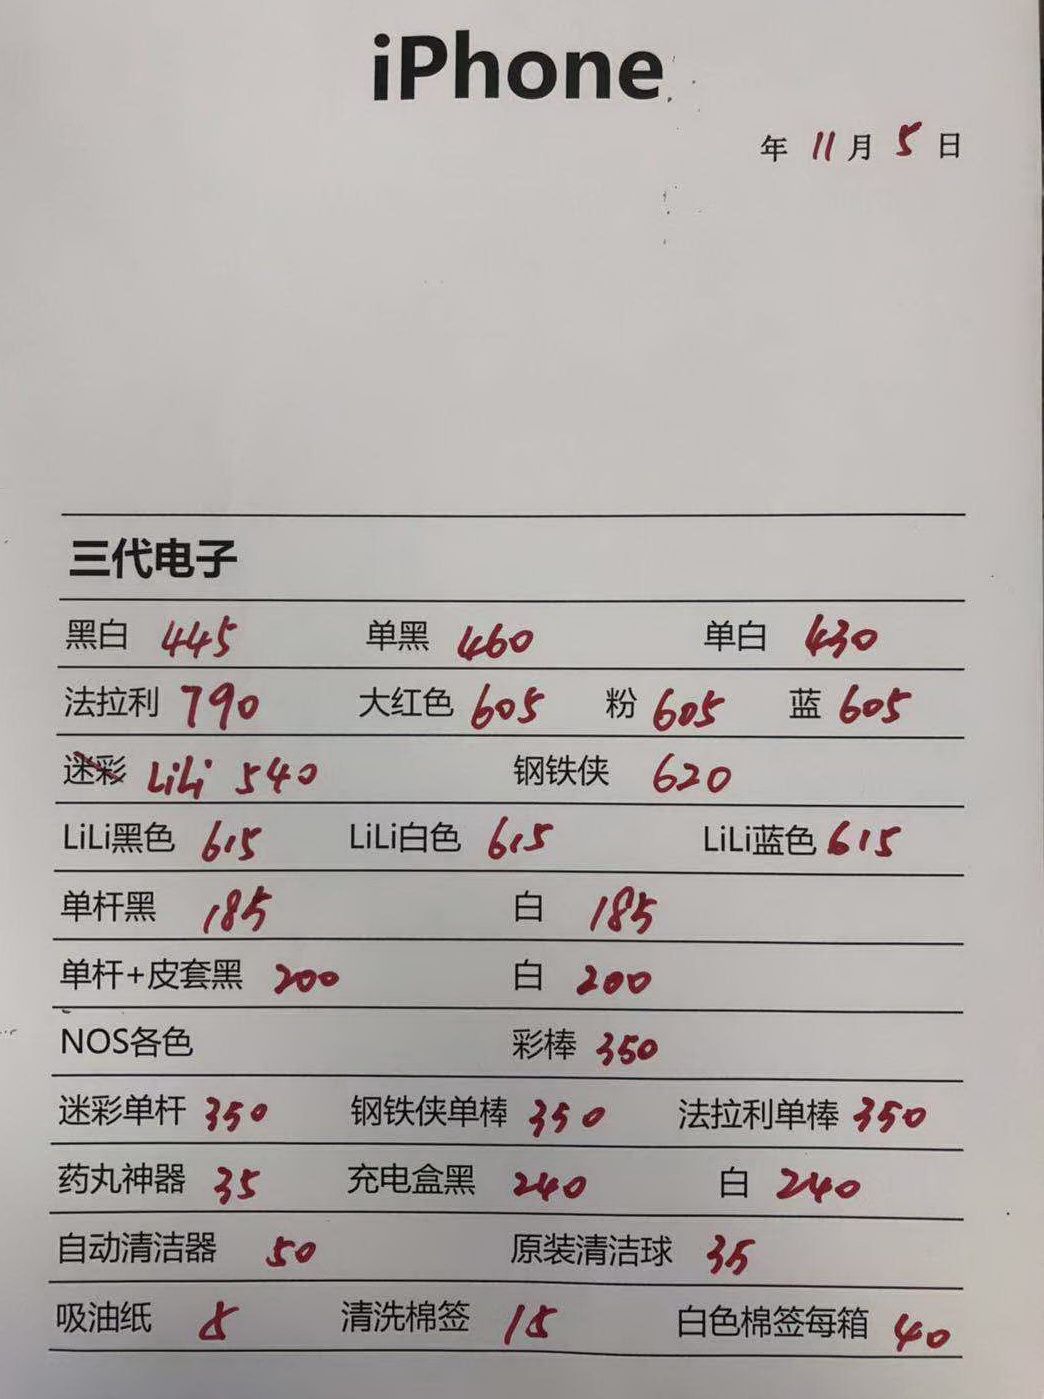 iPhone
年 11 月 5 日
三代电子
黑白 445 单黑 460 单白 430
法拉利 790 大红色 605 粉 605 蓝 605
迷彩 LiLi 540 钢铁侠 620
LiLi黑色 615 LiLi白色 615 LiLi蓝色 615
单杆黑 185 白 185
单杆+皮套黑 200 白 200
NOS各色 彩棒 350
迷彩单杆 350 钢铁侠单棒 350 法拉利单棒 350
药丸神器 35 充电盒黑 240 白 240
自动清洁器 50 原装清洁球 35
吸油纸 8 清洗棉签 18 白色棉签每箱 40